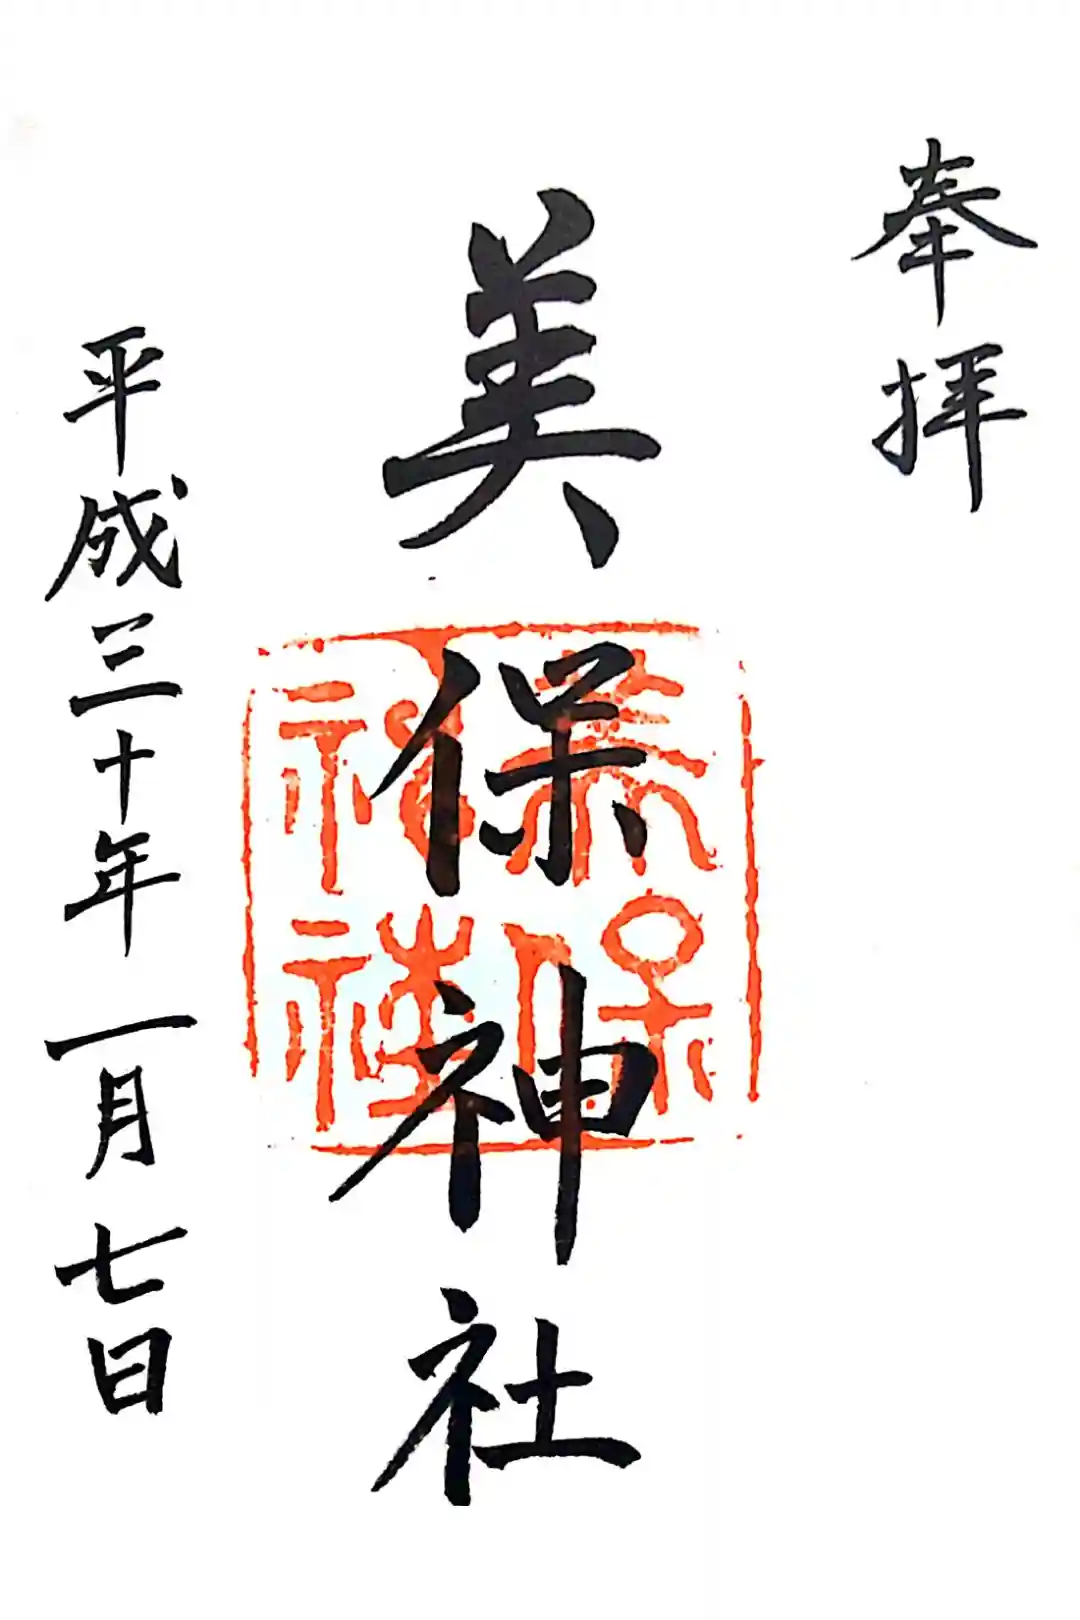 奉拝
美保神社
美保神社
平成三十年一月七日